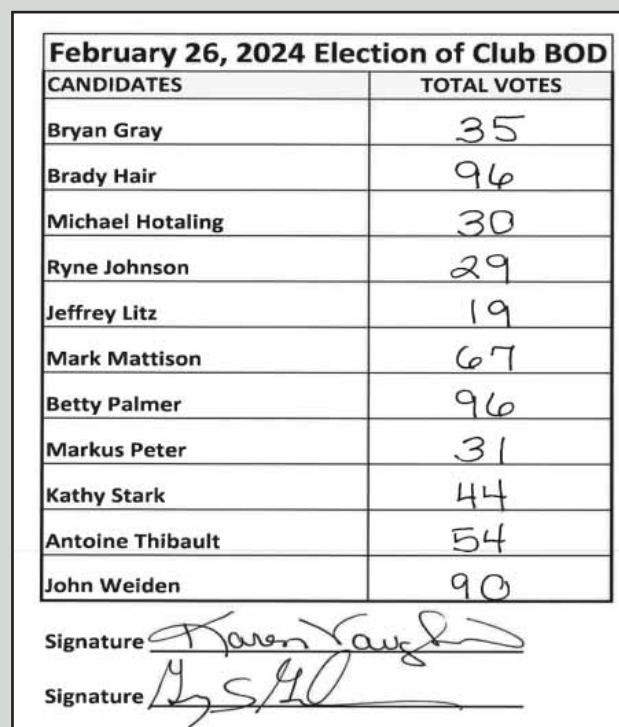 February 26, 2024 Election of Club BOD
CANDIDATES TOTAL VOTES
Bryan Gray 35
Brady Hair 96
Michael Hotaling 30
Ryne Johnson 29
Jeffrey Litz 19
Mark Mattison 67
Betty Palmer 96
Markus Peter 31
Kathy Stark 44
Antoine Thibault 54
John Weiden 90
Signature Karen
Signature